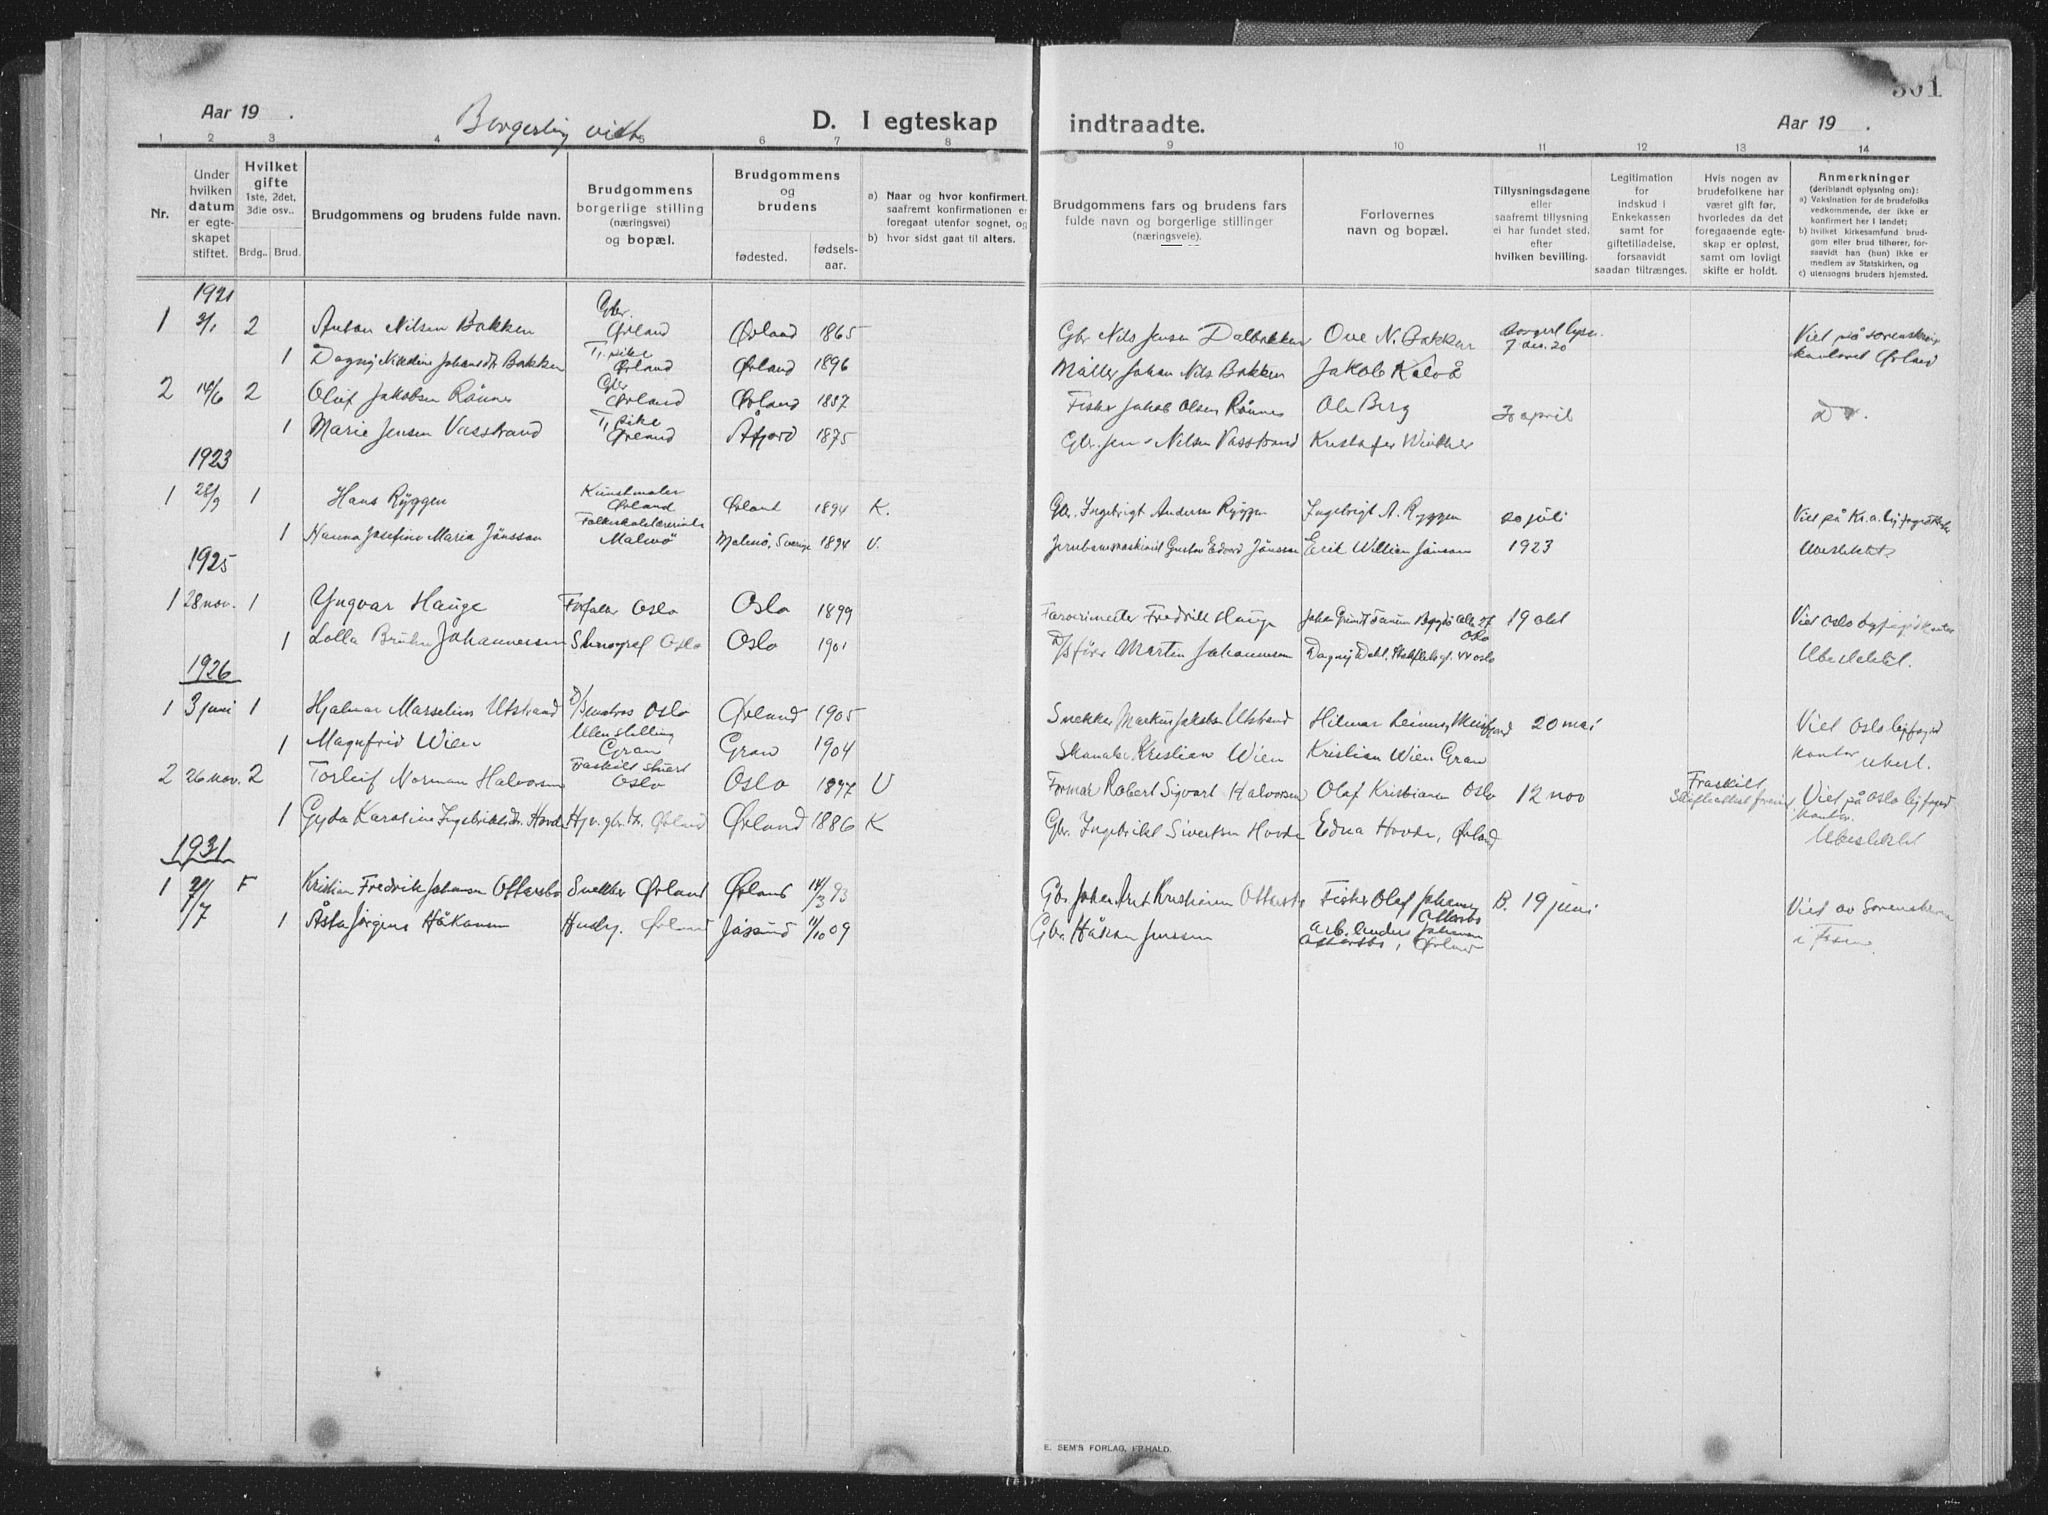 Aar 19 .
Borgerlig viet
D. I egteskap indtraadte.
Aar 19 .
301
1 2 3 4 5 6 7 8 9 10 11 12 13 14
Nr.
Under hvilken datum er egte-skapet stiftet.
Hvilket gifte 1ste, 2det, 3die osv..
Brdg.. Brud.
Brudgommens og brudens fulde navn.
Brudgommens borgerlige stilling (næringsvei) og bopæl.
Brudgommens og brudens
fødested. fødsels-aar.
a) Naar og hvor konfirmert, saafremt konfirmationen er foregaat utenfor sognet, og
b) hvor sidst gaat til alters.
Brudgommens fars og brudens fars fulde navn og borgerlige stillinger (næringsveie).
Forlovernes navn og bopæl.
Tillysningsdagene eller saafremt tillysning ei har fundet sted. efter hvilken bevilling.
Legitimation for indskud i Enkekassen samt for giftetilladelse, forsaavidt saadan tiltrænges.
Hvis nogen av brudefolkene har været gift før, hvorledes da det foregaaende egte-skap er opløst, samt om lovligt skifte er holdt.
Anmerkninger (deriblandt oplysning om):
a) Vaksination for de brudefolks vedkommende, der ikke er konfirmert her i landet;
b) hvilket kirkesamfund brud-gom eller brud tilhører, for-saavidt han (hun) ikke er medlem av Statskirken, og
c) utensogns bruders hjemsted.
1921
1 3/1 2 Anton Nilsen Bakken Gbr. Ørland Ørland 1865 Gbr Nils Jensen Dalbakken Ove N. Bakken borgerl lysn. 7 des. 20 Viet på sorenskriver kontoret Ørland
1 Dagny Nikoline Johansdtr Bakken Tj. pike Ørland Ørland 1896 Møller Johan Nils Bakken Jakob Kalvå
2 14/6 2 Oluf Jakobsen Rønnes Gbr Ørland Ørland 1887 Fisker Jakob Olsen Rønnes Ole Berg 30 april Do.
1 Marie Jensen Vasstrand Tj. pike Ørland Åfjord 1875 Gbr. Jens Nilsen Vasstrand Kristofer Winther
1923
1 28/9 1 Hans Ryggen Kunstmaler Ørland Ørland 1894 K. Gbr. Ingebrigt Andersen Ryggen Ingebrigt A. Ryggen 20 juli Viet på Kr.a. byfogdktr
1 Hanna Josefina Maria Jönsson Folkeskolelærerinde Malmö Malmö, Sverige 1894 U. Jernbanemaskinist Gustav Edvard Jönsson Erik William Jönsson 1923 Ubeslektet
1925
1 28 nov. 1 Yngvar Hauge Forfatter Oslo Oslo 1899 Farverimester Fredrik Hauge Johan Grundt Tanum Bygdø Alle 27 Oslo 19 okt Viet Oslo byfogdkontor
1 Lolla Bruhn Johannessen Stenograf Oslo Oslo 1901 D/S fører Martin Johannessen Dagny Dahl. Stolflebsgt. 44 Oslo Ubeslektet.
1926
1 3 juni 1 Hjalmar Marselius Utstrand D/S matros Oslo Ørland 1905 Snekker Markus Jakobsen Utstrand Hilmar 20 mai Viet Oslo byfogd
1 Magnfrid Wien Uten stilling Gran Gran 1904 Skomaker Kristian Wien Kristian Wien Gran kontor ubesl.
2 26 nov. 2 Torleif Norman Halvorsen Fraskilt Stuert Oslo Oslo 1897 U Formar Robert Sigvart Halvorsen Olaf Kristiansen Oslo 12 nov Fraskilt Skifteattest foreviist Viet på Oslo byfogd kontor.
1 Gyda Karoline Ingebriktsdtr. Hovde Hjv. gbr.dtr. Ørland Ørland 1886 K Gbr. Ingebrikt Sivertsen Hovde Edna Hovde, Ørland Ubeslektet
1931
1 21/7 F Kristian Fredrik Johansen Ottersbo Snekker Ørland Ørland 14/3 93 Gbr Johan Arnt Kristiansen Ottersbo Fisker Olaf Johansen Ottersbo B. 19 juni Viet av Sorenskriveren
1 Åsta Jørgine Håkonsen Husbg. Ørland Jøssund 11/10 09 Gbr. Håkon Jenssen Arb. Anders Johansen Ottersbo, Ørland i Fosen
E. SEM'S FORLAG, FR.HALD.